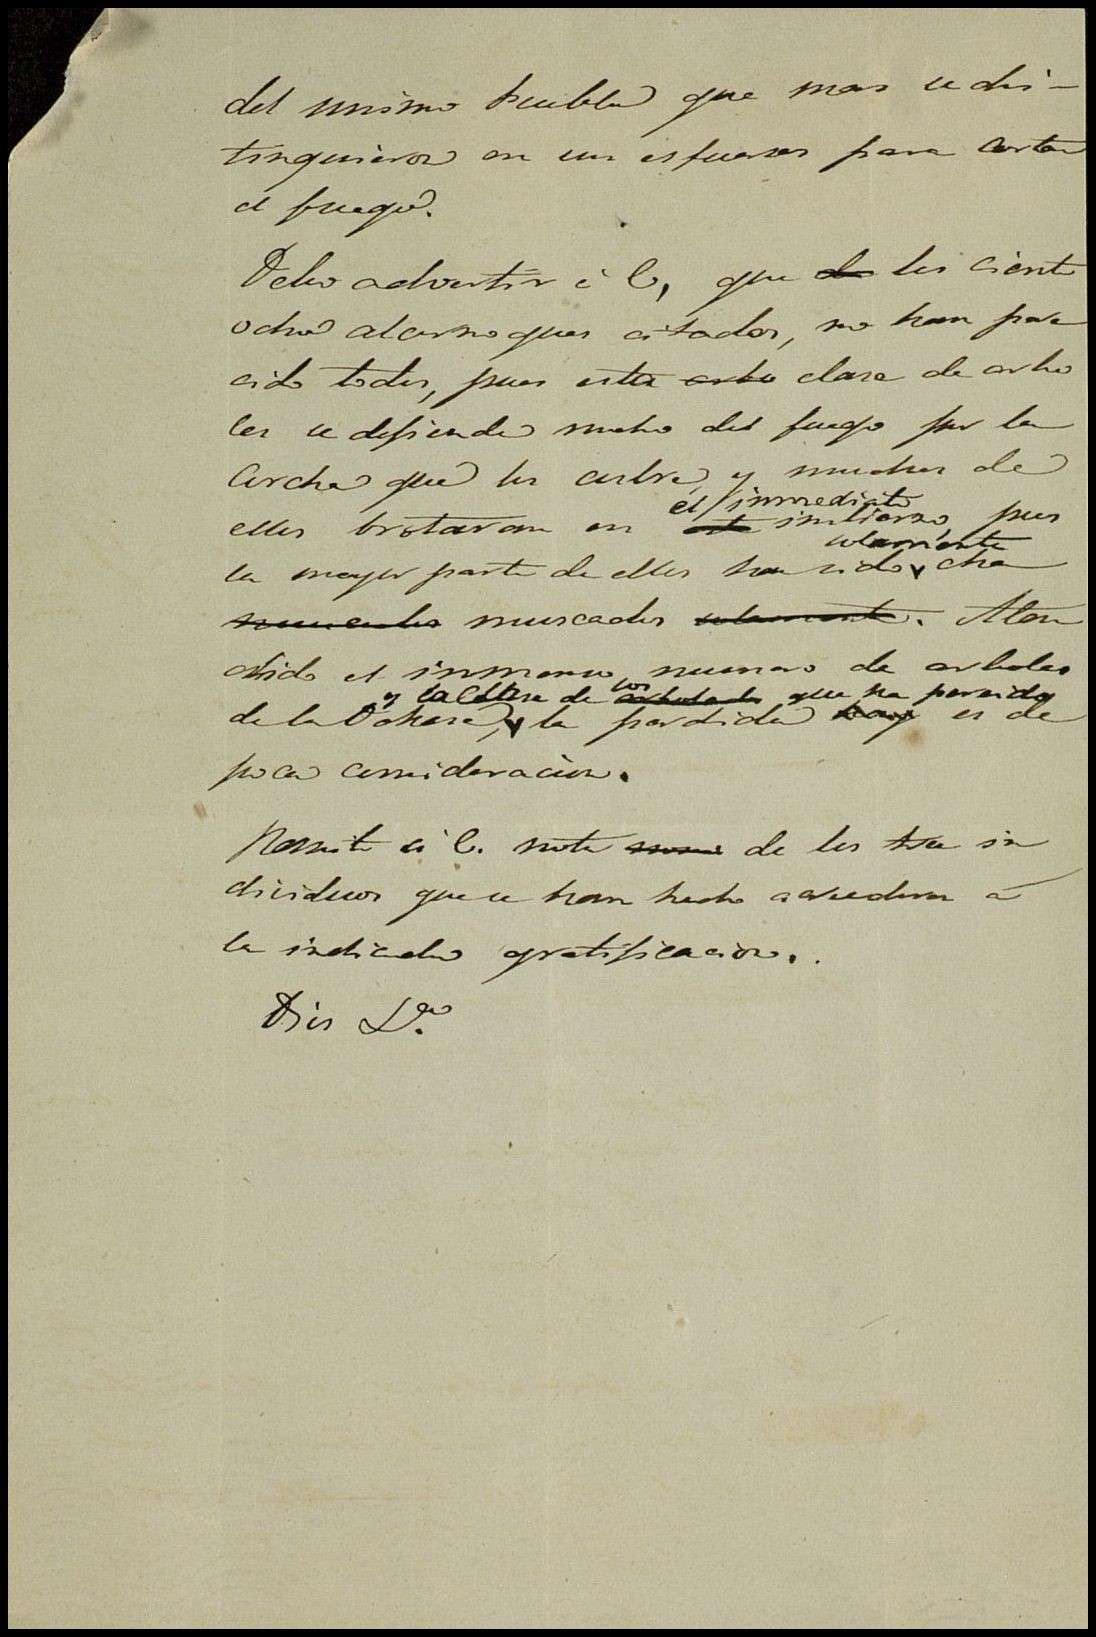 del mismo Pueblo que mas se dis-
tinguieron en sus esfuersos para cortar
el fuego.
Debo advertir á E, que de los ciento
ocho alcornoques citados, no han pere
cido todos, pues esta arbo clase de arbo
les se defiende mucho del fuego por la
corcha que los cubre, y muchos de
el inmediato
ellos brotaran en este invierno, pues
solamente
la mayor parte de ellos han sido cha
muscados solamente. Aten
dido el inmenso numero de arboles
y la clase de los arbolado que ha perecido
de la Dehesa, la perdida es de
poca consideracion.
Remito á E. nota de los tres in
dividuos que se han hecho acreedores á
la indicada gratificacion.
Dios